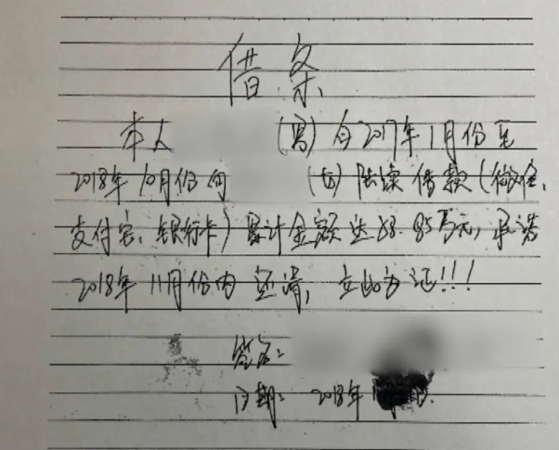 借条
本人 (男) 自2017年1月份至
2018年10月份向 (女) 陆续借款 (微信、
支付宝、银行卡) 累计金额达58.85万元,承诺
2018年11月份内还清,立此为证!!!
签名:
日期: 2018年